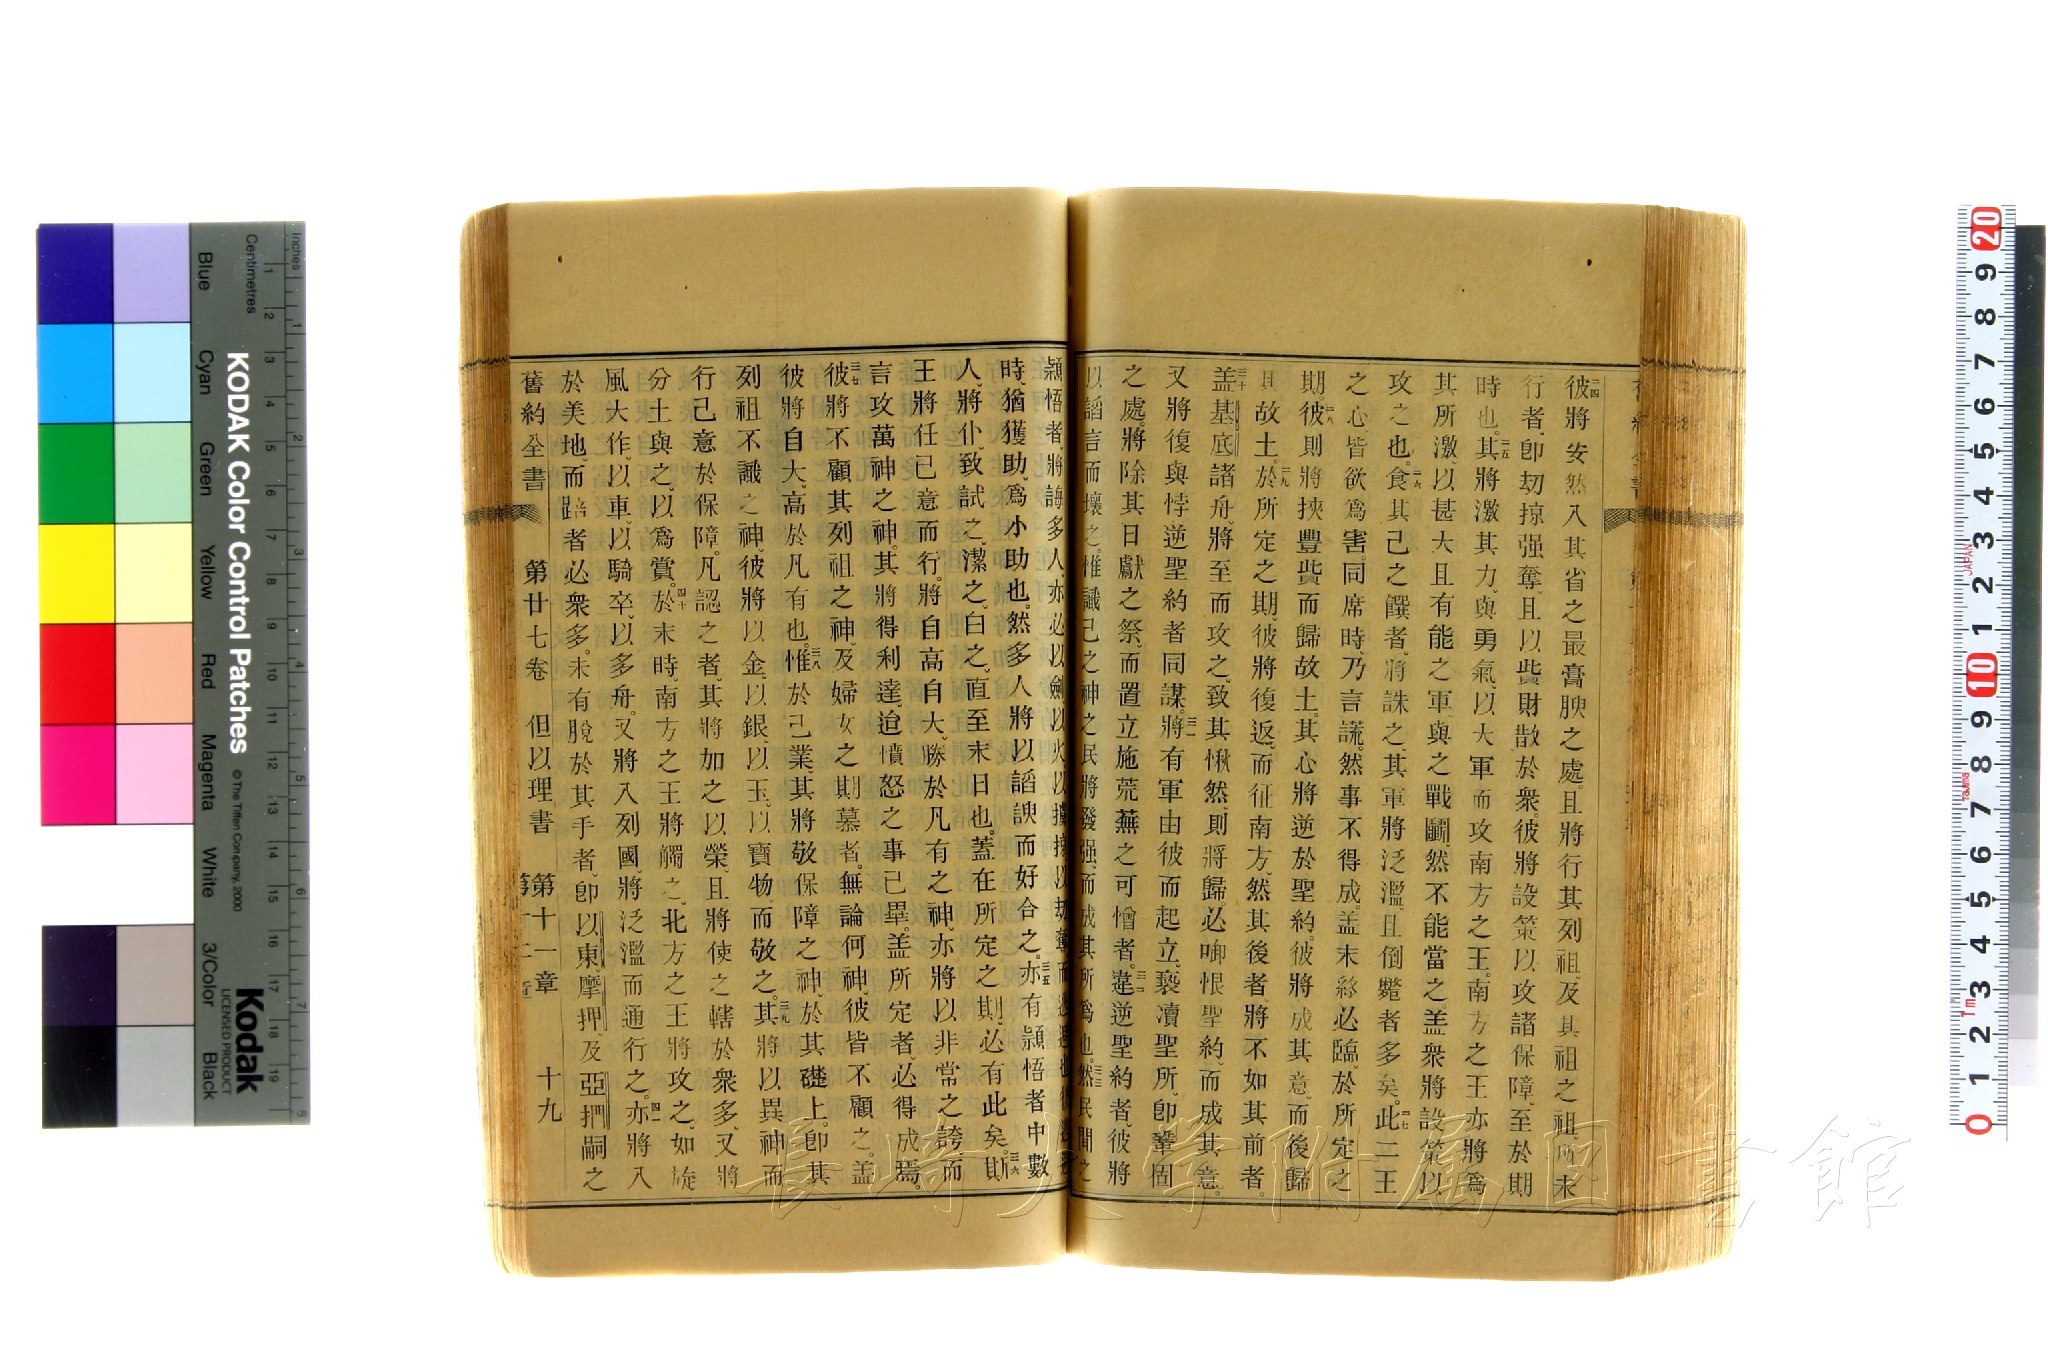 彼將安然入其省之最膏腴之處、且將行其列祖、及其祖之祖、所未
行者、卽刧掠强奪、且以貲財散於衆、彼將設策以攻諸保障、至於期
時也、其將激其力、與勇氣、以大軍而攻南方之王、南方之王亦將爲
其所激、以甚大且有能之軍、與之戰鬭、然不能當之、盖衆將設策以
攻之也、食其己之饌者、將誅之、其軍將泛濫、且倒斃者多矣、此二王
之心皆欲爲害、同席時、乃言謊、然事不得成、盖末終必臨、於所定之
期、彼則將挾豐貲而歸故土、其心將逆於聖約、彼將成其意、而後歸
其故土、於所定之期、彼將復返、而征南方、然其後者、將不如其前者、
盖基底諸舟、將至而攻之、致其愀然、則將歸必啣恨聖約、而成其意、
又將復與悖逆聖約者同謀、將有軍由彼而起立、褻凟聖所、卽鞏固
之處、將除其日獻之祭、而置立施荒蕪之可憎者、違逆聖約者、彼將
以謟言而壞之、惟識己之神之民將發强、而成其所爲也、然民間之
頴悟者、將誨多人、亦必以劍以火、以擄掠以刧奪
時、猶獲助、爲小助也、然多人將以謟諛而好合之、亦有頴悟者中數
人、將仆、致試之、潔之、白之、直至末日也、蓋在所定之期、必有此矣、斯
王將任己意而行、將自高自大、勝於凡有之神、亦將以非常之誇、而
言攻萬神之神、其將得利達、迨憤怒之事已畢、盖所定者、必得成焉、
彼將不顧其列祖之神、及婦女之期慕者、無論何神、彼皆不顧之、盖
彼將自大、高於凡有也、惟於己業其將敬保障之神、於其礎上、卽其
列祖不識之神、彼將以金、以銀以玉、以寶物、而敬之、其將以異神而
行己意於保障、凡認之者、其將加之以榮、且將使之轄於衆多、又將
分土與之、以爲賞、於末時、南方之王將觸之、北方之王將攻之、如旋
風大作、以車、以騎卒、以多舟、又將入列國、將泛濫而通行之、亦將入
於美地、而踣者必衆多、未有脫於其手者、卽以東摩押、及亞捫嗣之
舊約全書 第廿七卷 但以理書 第十一章 第十二章 十九
KODAK Color Control Patches
© The Tiffen Company, 2000
Kodak
LICENSED PRODUCT
Inches
Centimetres
Blue Cyan Green Yellow Red Magenta White 3/Color Black
長崎大学附属図書館
JAPAN